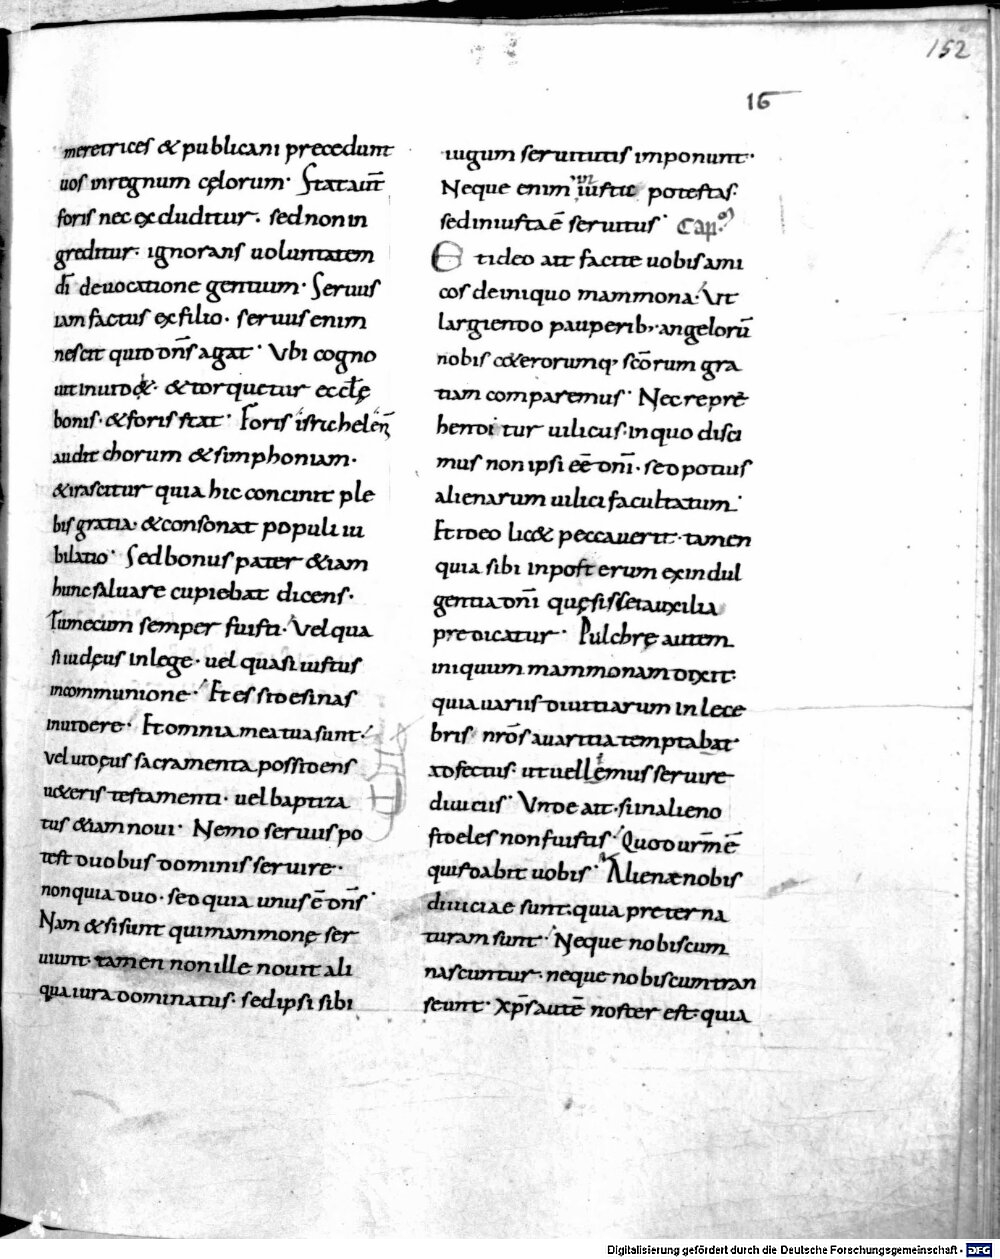 152
16
meretrices & publicani precedunt
uos inregnum cęlorum· Stat aut̅
foris nec excluditur· sed non in
greditur· ignorans uoluntatem
di̅ deuocatione gentium· Seruus
iam factus exfilio· seruus enim
nescit quid dn̅s agat· Vbi cogno
uit inuid&· & torquetur eccl̅ę
bonis· & foris stat· Foris
audit chorum & simphoniam·
& irascitur quia hic concinit ple
bis gratia· & consonat populi iu
bilatio· Sed bonus pater &iam
hunc saluare cupiebat dicens·
Tu mecum semper fuisti· Vel qua
si iudęus inlege· uel quasi iustus
incommunione· Et es si desinas
inuidere· Et omnia mea tua sunt·
Vel iudęus sacramenta possidens
u&eris testamenti· uel baptiza
tus &iam noui· Nemo seruus po
test duobus dominis seruire·
non quia duo· sed quia unus e̅ dn̅s·
Nam & si sunt qui mammonę ser
uiunt· tamen non ille nouit ali
qua iura dominatus· sed ipsi sibi
iugum seruitutis imponunt·
Neque enim iusta potestas·
sed iniusta e̅ seruitus· Cap
Et ideo ait facite uobis ami
cos de iniquo mammona· Vt
largiendo pauperib; angeloru̅
nobis c&erorumq; sc̅orum gra
tiam comparemus· Nec repre̅
henditur uilicus· in quo disci
mus non ipsi ee̅ dni̅· sed potius
alienarum uilici facultatum·
Et ideo lic& peccauerit· tamen
quia sibi inposterum exindul
gentia dni̅ quęsisset auxilia
predicatur· Pulchrę autem
iniquum mammonam dixit·
quia uariis diuitiarum inlece
bris nr̅os auaritia temptabat
adfectus· ut uellemus seruire
diuitiis· Vnde ait· si inalieno
fideles non fuistis· Quod urm̅ e̅
quis dabit uobis· Alienæ nobis
diuiciae sunt· quia preter na
turam sunt· Neque nobiscum
nascuntur· neque nobiscum tran
seunt· Xp̅s aute̅ noster est· quia
Digitalisierung gefördert durch die Deutsche Forschungsgemeinschaft - DFG